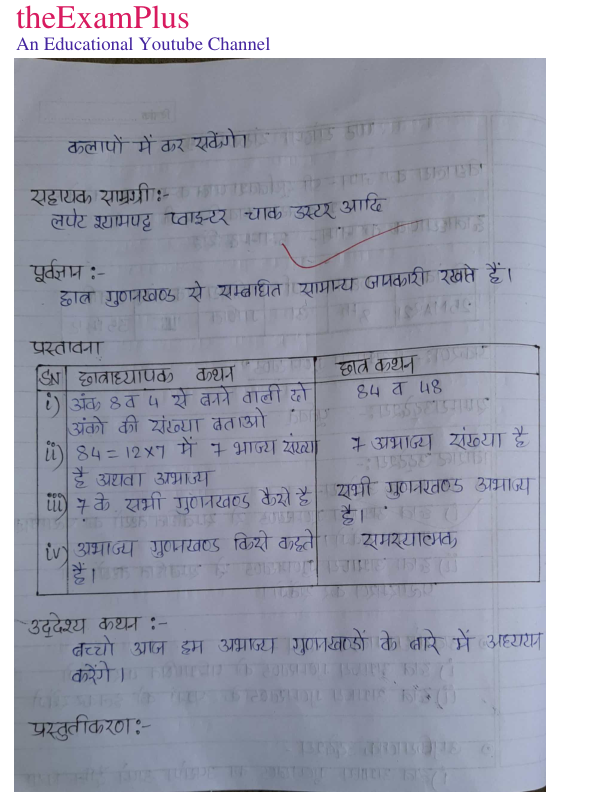 theExamPlus
An Educational Youtube Channel
कलापों में कर सकेंगे।
सहायक सामग्री:-
लपेट श्यामपट्ट प्वाइन्टर चाक डस्टर आदि
पूर्वज्ञान :-
छात्र गुणनखण्ड से सम्बंधित सामान्य जानकारी रखते हैं।
प्रस्तावना
SN छात्राध्यापक कथन छात्र कथन
i) अंक 8 व 4 से बनने वाली दो 84 व 48
अंको की संख्या बताओ
ii) 84 = 12×7 में 7 भाज्य संख्या 7 अभाज्य संख्या है
है अथवा अभाज्य
iii) 7 के सभी गुणनखण्ड कैसे है सभी गुणनखण्ड अभाज्य
है।
iv) अभाज्य गुणनखण्ड किसे कहते समस्यात्मक
हैं।
उद्देश्य कथन :-
बच्चो आज हम अभाज्य गुणनखण्डों के बारे में अध्ययन
करेंगे।
प्रस्तुतीकरण:-